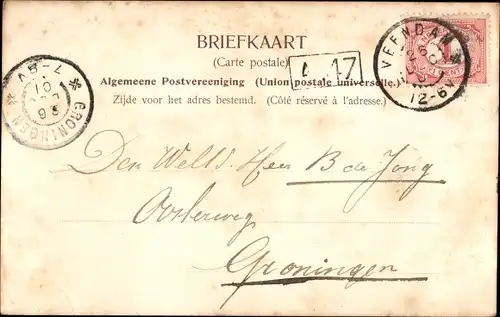 BRIEFKAART
(Carte postale)
Algemeene Postvereeniging (Union postale universelle.)
Zijde voor het adres bestemd. (Côté réservé à l'adresse.)
A 17
VEENDAM
12-6N
GRONINGEN
Den WelEd. Heer B de Jong
Oosterweg
Groningen